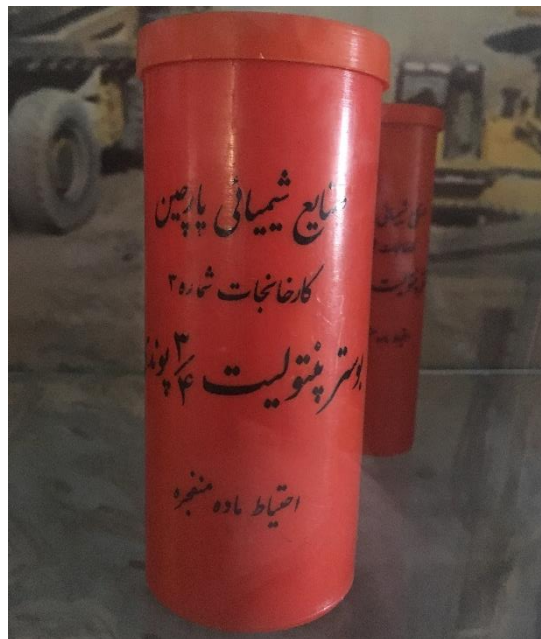 صنایع شیمیائی پارچین
کارخانجات شماره ۳
بوستر پنتولیت ۳/۴ پوندی
احتیاط ماده منفجره